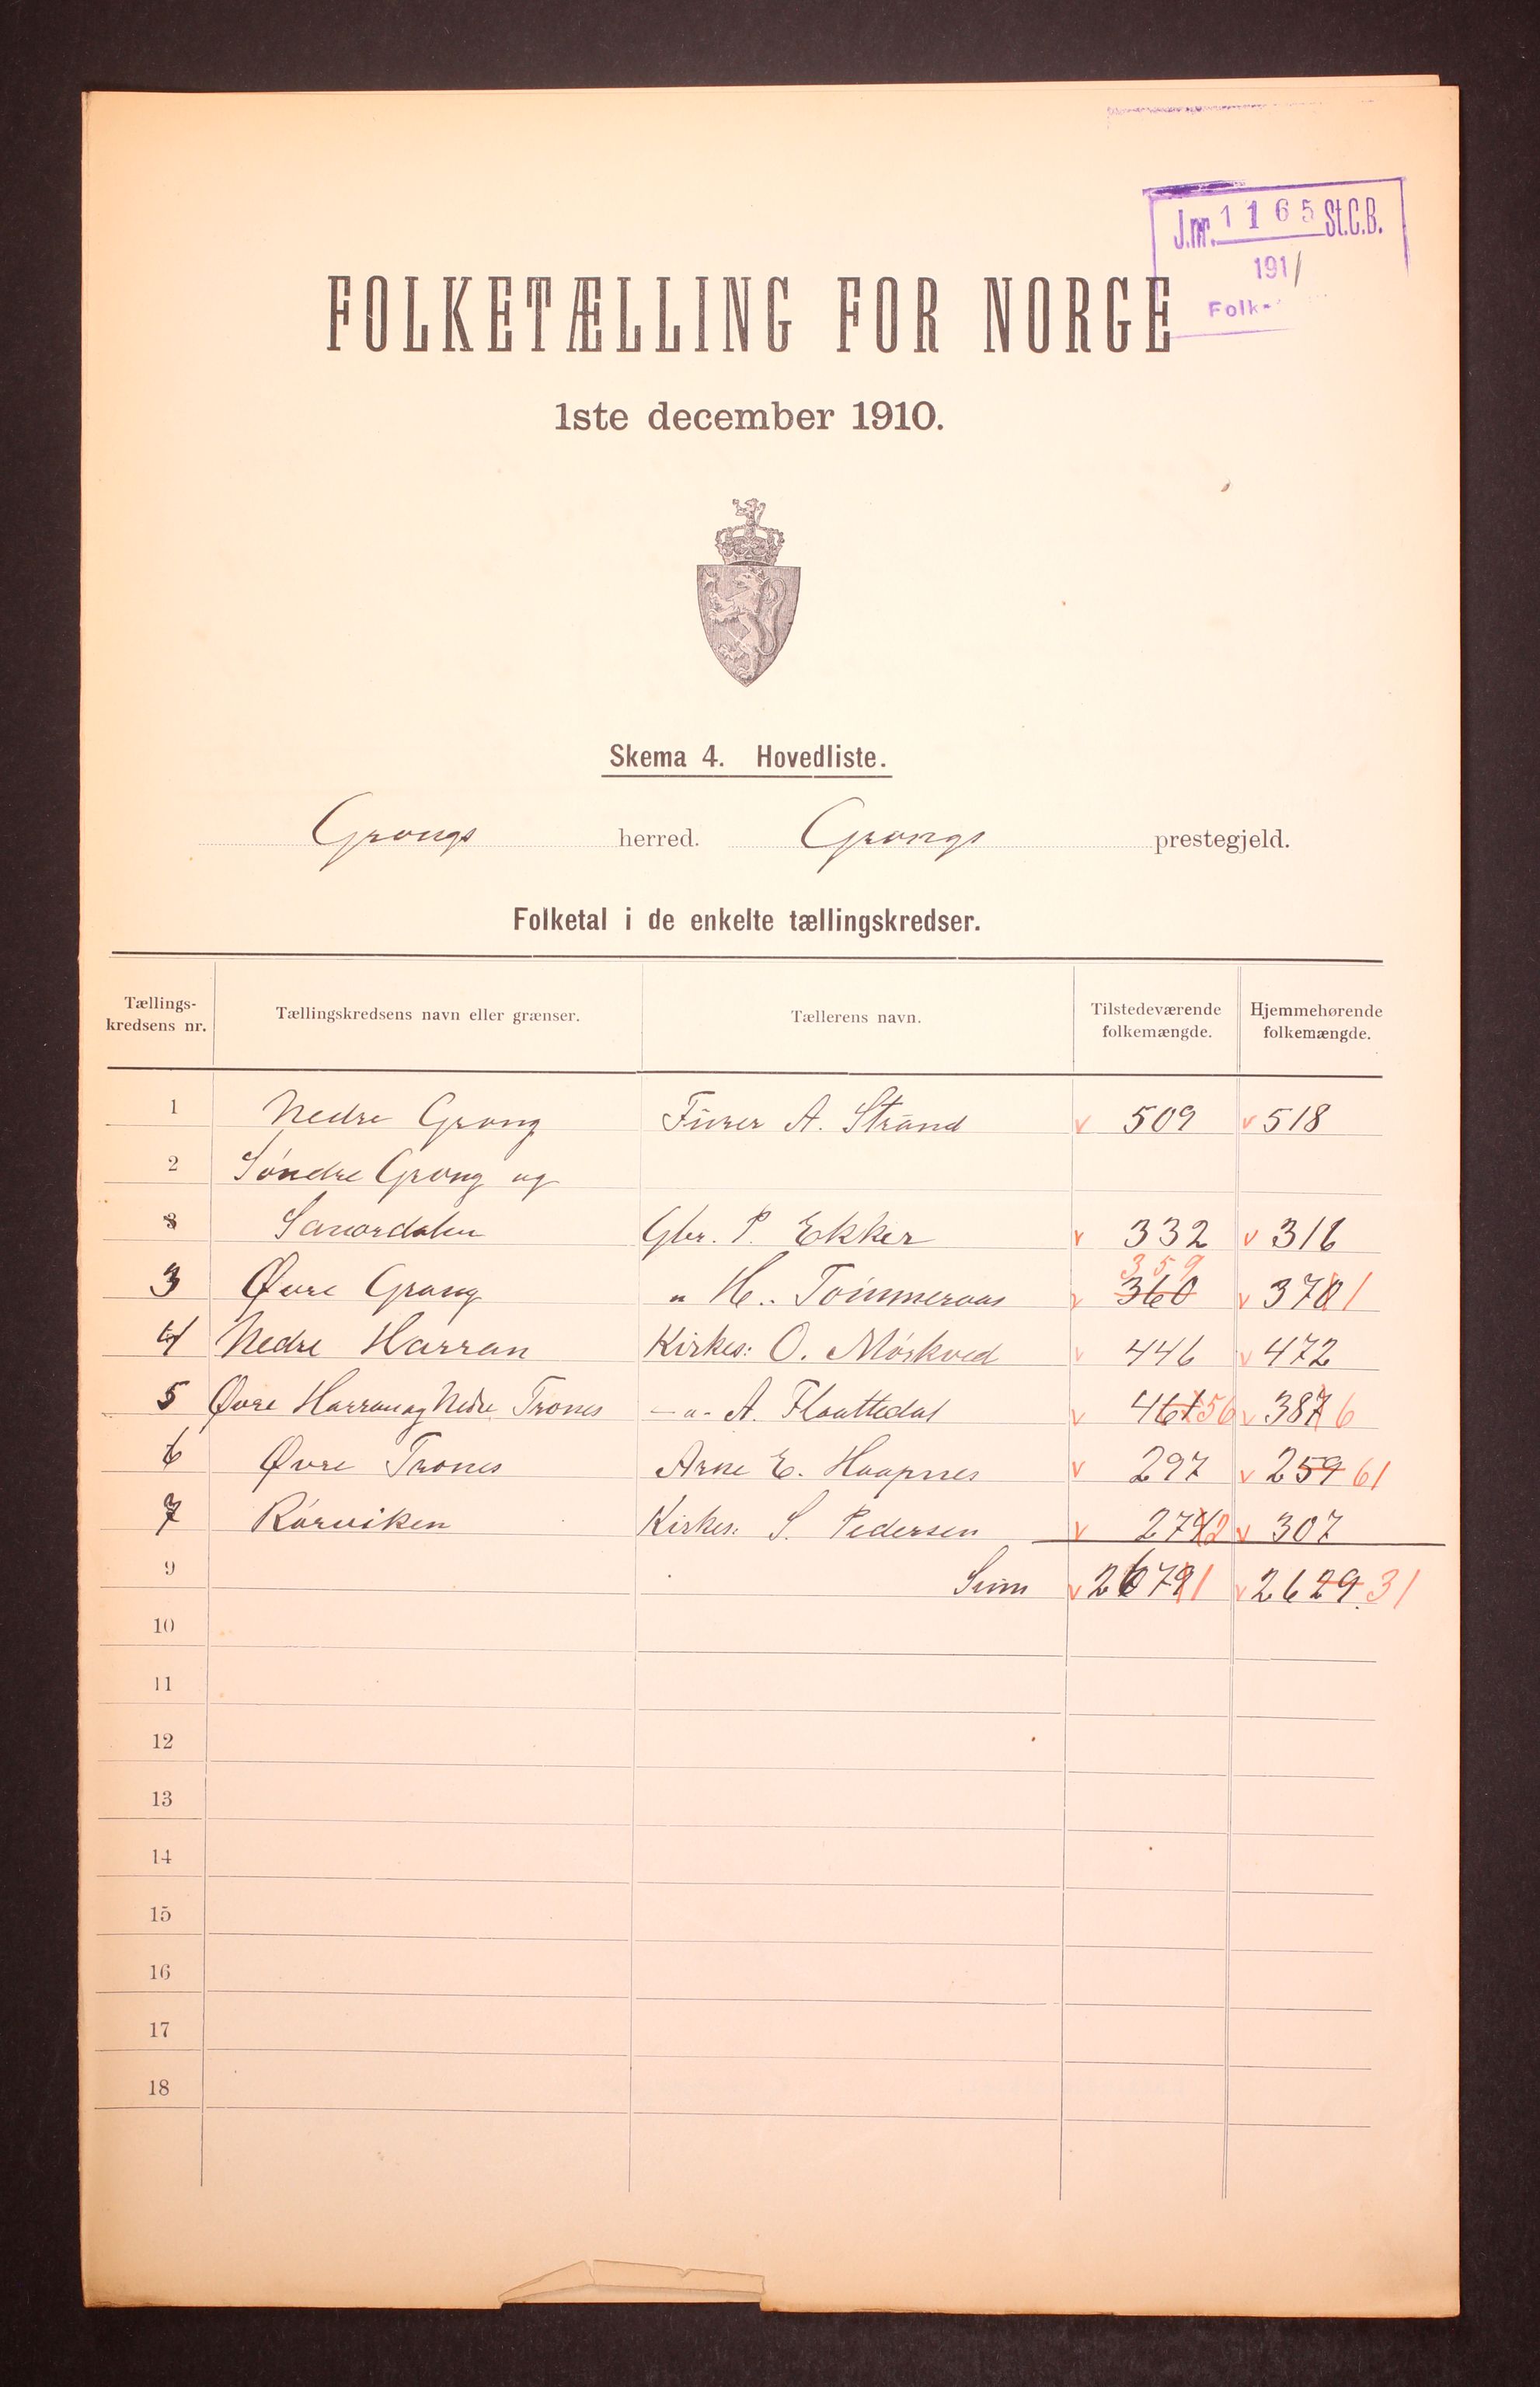 J.nr. 1165 St.C.B.
1911
Folk-
FOLKETÆLLING FOR NORGE
1ste december 1910.
Skema 4. Hovedliste.
Grongs herred. Grongs prestegjeld.
Folketal i de enkelte tællingskredser.
Tællings-kredsens nr. Tællingskredsens navn eller grænser. Tællerens navn. Tilstedeværende folkemængde. Hjemmehørende folkemængde.
1 Nedre Grong A. Strand v 509 v 518
2 Søndre Grong og
3 Sanørdalen Gbr. P. Ekker v 332 v 316
359
3 Øvre Grong " H. Tømmeraas v 360 v 370 1
4 Nedre Harran Kirkes: O. Mørkved v 446 v 472
5 Øvre Harran og Nedre Trones -"- A. Flaattedal v 461 56 v 387 6
6 Øvre Trones Arne E. Haapnes v 297 v 259 61
7 Rørviken Kirkes: S. Pedersen v 274 2 v 307
9 Sum v 2679 1 v 2629 31
10
11
12
13
14
15
16
17
18